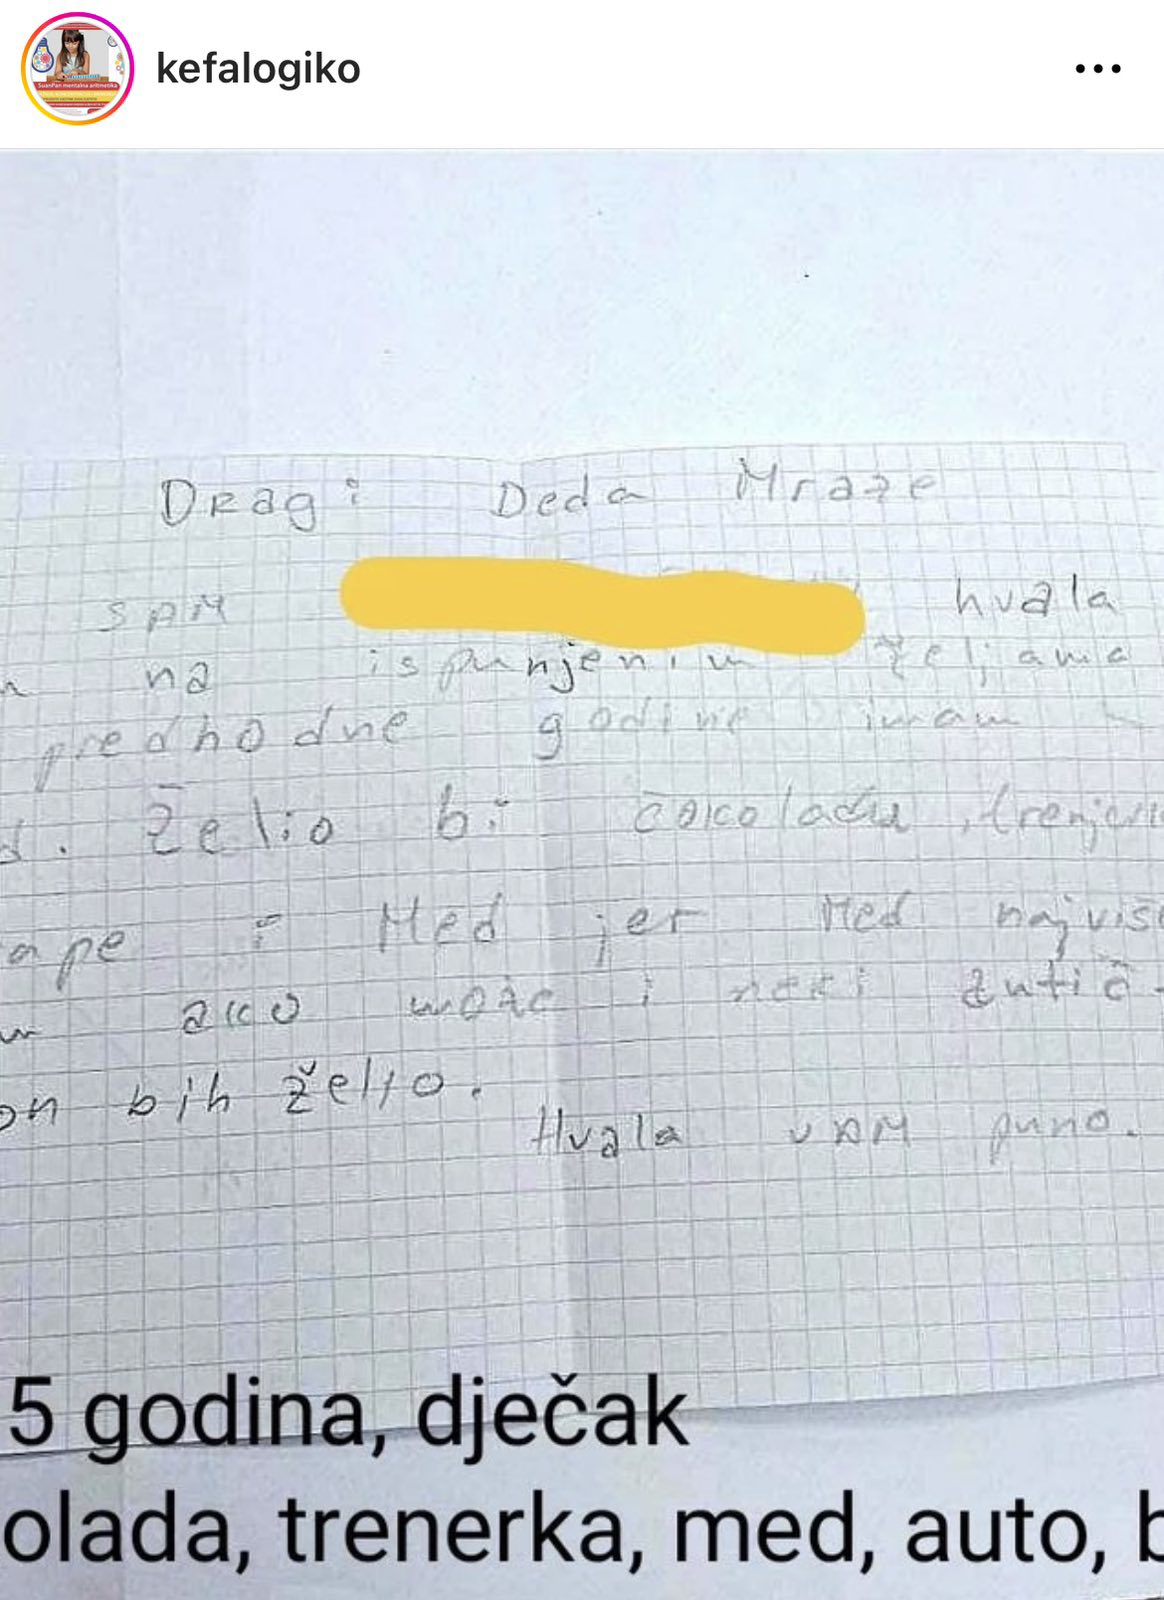 kefalogiko
SuanPan mentalna aritmetika
Dragi Deda Mraze
SAM hvala
na ispunjenim željama
predhodne godine imam
Želio bi čokoladu,
ape i Med jer Med najviš
ako može i neki žutić
on bih želio.
Hvala VAM puno.
5 godina, dječak
olada, trenerka, med, auto, b